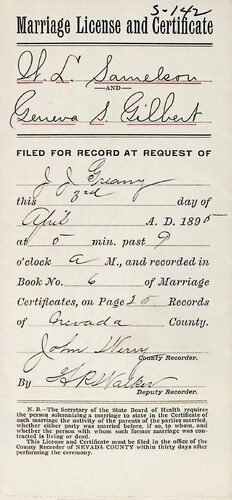 S-142
Marriage License and Certificate
W. L. Samelson
AND
Geneva S. Gilbert
FILED FOR RECORD AT REQUEST OF
J J Greany
this 3rd day of
April A. D. 1895
at 5 min. past 9
o'clock a M., and recorded in
Book No. 6 of Marriage
Certificates, on Page 25 Records
of Nevada County.
John Werry
County Recorder.
By H R Walker
Deputy Recorder.
N. B.—The Secretary of the State Board of Health requires
the person solemnizing a marriage to state in the Certificate of
such marriage the nativity of the parents of the parties married,
whether either party was married before, if so, to whom, and
whether the person with whom such former marriage was con-
tracted is living or dead.
This License and Certificate must be filed in the office of the
County Recorder of NEVADA COUNTY within thirty days after
performing the ceremony.